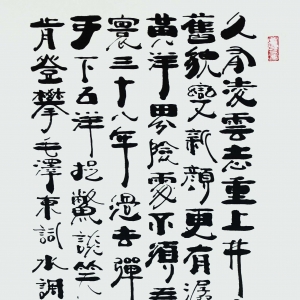 久有凌雲志重上井
舊貌變新顏更有潺
黄洋界險處不須
寰三十八年過去彈
手下五洋捉鱉談笑
肯登攀毛澤東詞水調